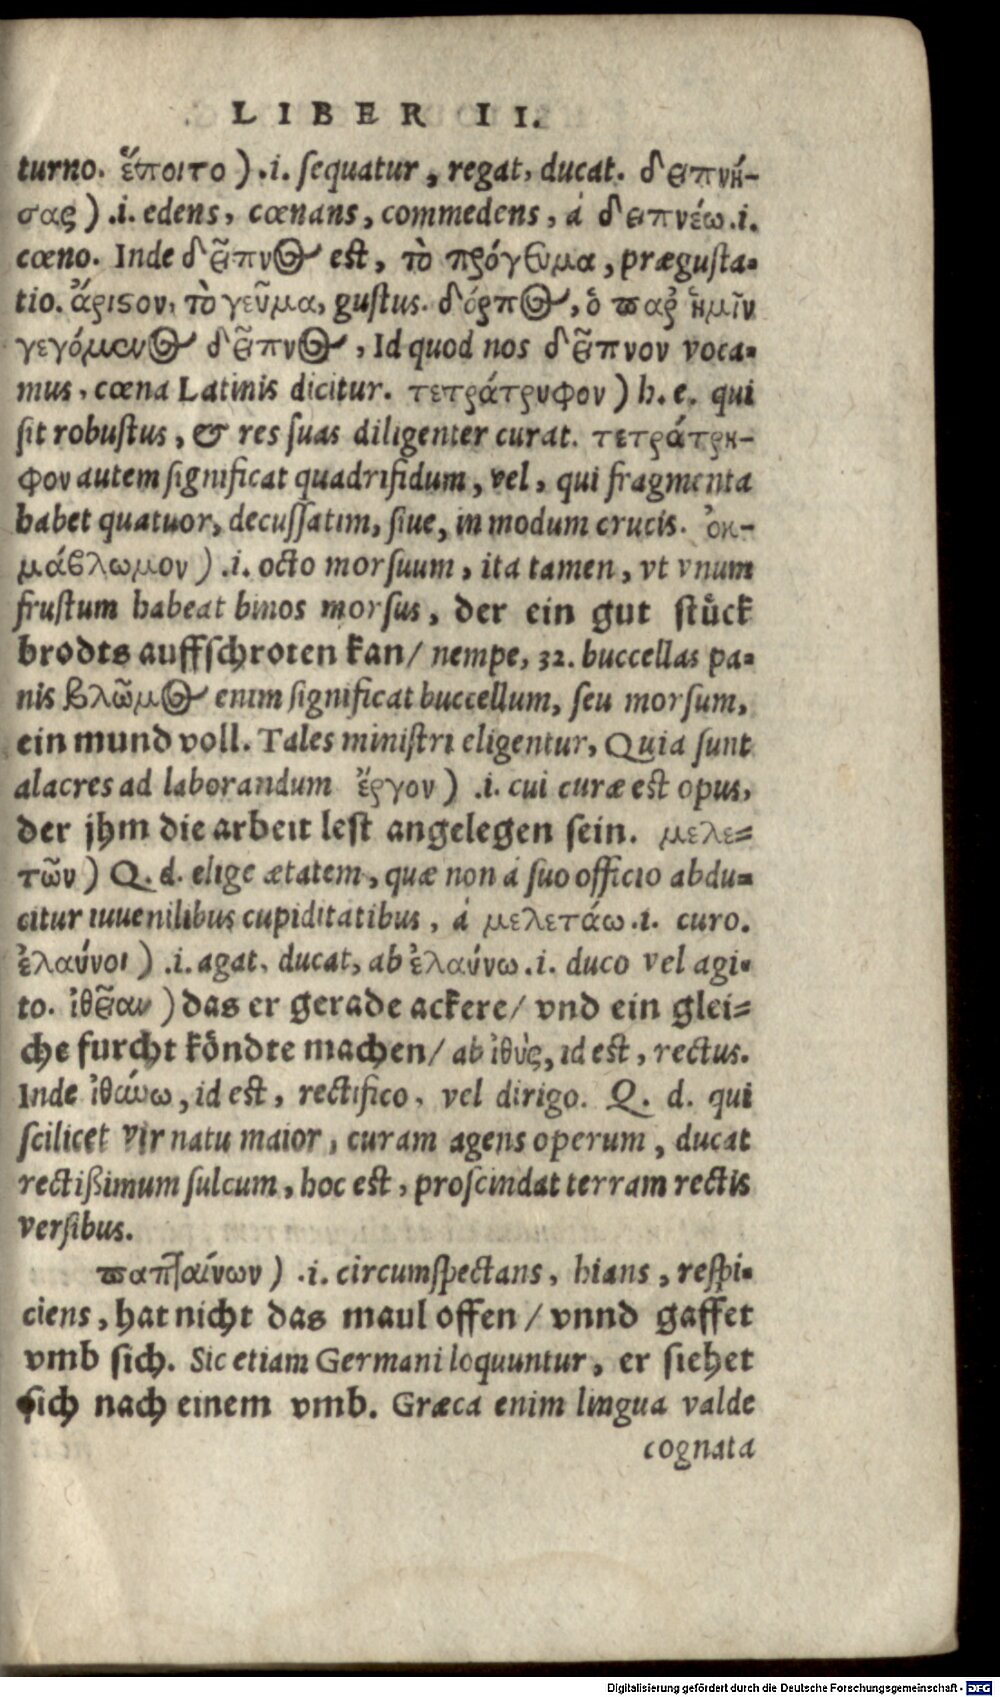 LIBER II.
turno. ἕποιτο) .i. sequatur, regat, ducat. δειπνή-
σας) .i. edens, cœnans, commedens, á δειπνέω .i.
cœno. Inde δεῖπνος est, τὸ πρόγευμα, prægusta-
tio. ἄριστον, τὸ γεῦμα, gustus. δόρπος, ὁ παρ' ἡμῖν
γεγόμενος δεῖπνος, Id quod nos δεῖπνον voca-
mus, cœna Latinis dicitur. τετράτρυφον) h. e. qui
sit robustus, & res suas diligenter curat. τετράτρυ-
φον autem significat quadrifidum, vel, qui fragmenta
habet quatuor, decussatim, siue, in modum crucis. ὀκ-
μάβλωμον) .i. octo morsuum, ita tamen, vt vnum
frustum habeat binos morsus, der ein gut stück
brodts auffschroten kan/ nempe, 32. buccellas pa-
nis βλῶμος enim significat buccellum, seu morsum,
ein mund voll. Tales ministri eligentur, Quia sunt
alacres ad laborandum ἔργον) .i. cui curæ est opus,
der jhm die arbeit lest angelegen sein. μελε-
τῶν) Q. d. elige ætatem, quæ non á suo officio abdu-
citur iuuenilibus cupiditatibus, á μελετάω .i. curo.
ἐλαύνοι) .i. agat, ducat, ab ἐλαύνω .i. duco vel agi-
to. ἰθεῖαν) das er gerade ackere/ vnd ein glei-
che furcht köndte machen/ ab ἰθὺς, id est, rectus.
Inde ἰθύνω, id est, rectifico, vel dirigo. Q. d. qui
scilicet vir natu maior, curam agens operum, ducat
rectißimum sulcum, hoc est, proscindat terram rectis
versibus.
παπταίνων) .i. circumspectans, hians, respi-
ciens, hat nicht das maul offen/ vnnd gaffet
vmb sich. Sic etiam Germani loquuntur, er siehet
sich nach einem vmb. Græca enim lingua valde
cognata
Digitalisierung gefördert durch die Deutsche Forschungsgemeinschaft - DFG